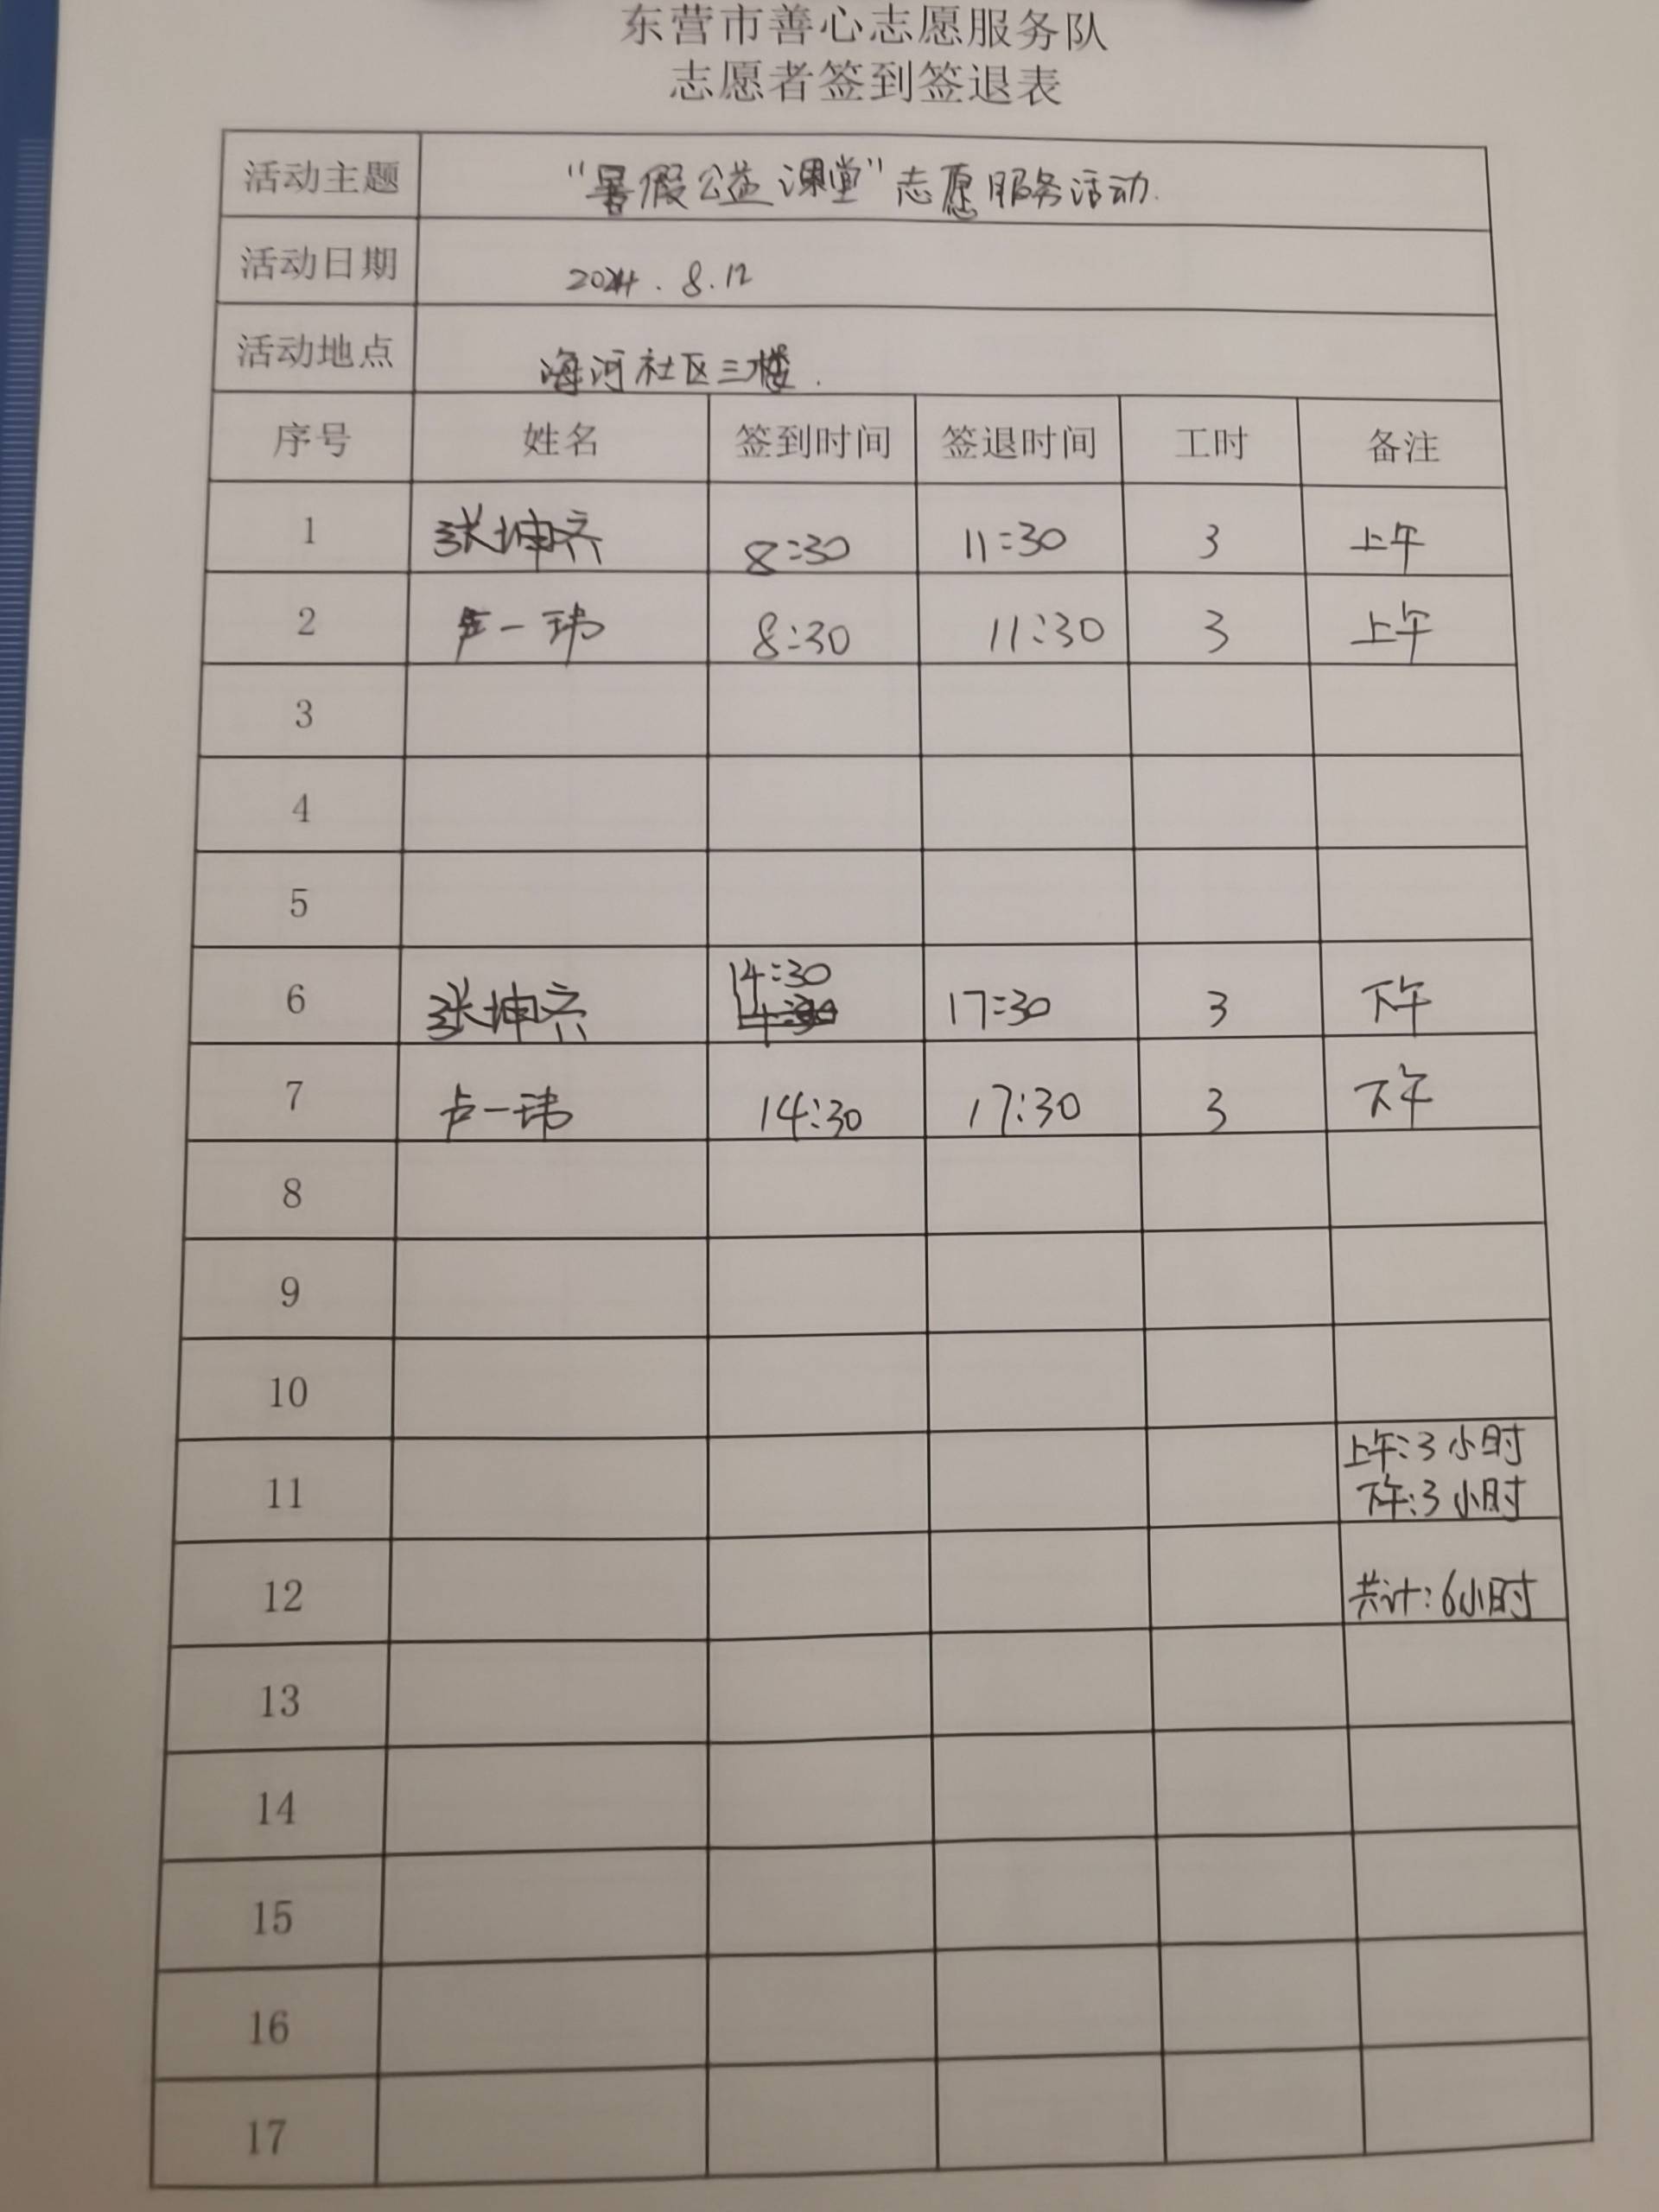 东营市善心志愿服务队
志愿者签到签退表
活动主题 “暑假公益课堂”志愿服务活动.
活动日期 2024.8.12
活动地点 海河社区三楼.
序号 姓名 签到时间 签退时间 工时 备注
1 张坤齐 8:30 11:30 3 上午
2 卢一玮 8:30 11:30 3 上午
3
4
5
6 张坤齐 14:30 17:30 3 下午
7 卢一玮 14:30 17:30 3 下午
8
9
10
11 上午:3小时
下午:3小时
12 共计:6小时
13
14
15
16
17